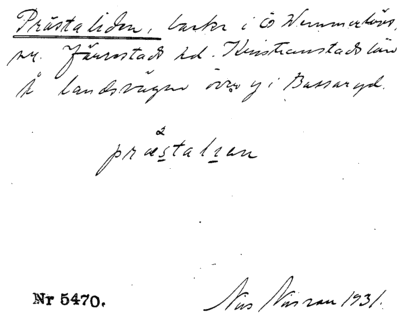 Prästaliden, backe i Ö Vemmerlövs,
sn. Järrestads hd. Kristianstads län
Å landsvägen över g i Bassaryd.
præstalian
Nr 5470. Nils Nilsson 1931.